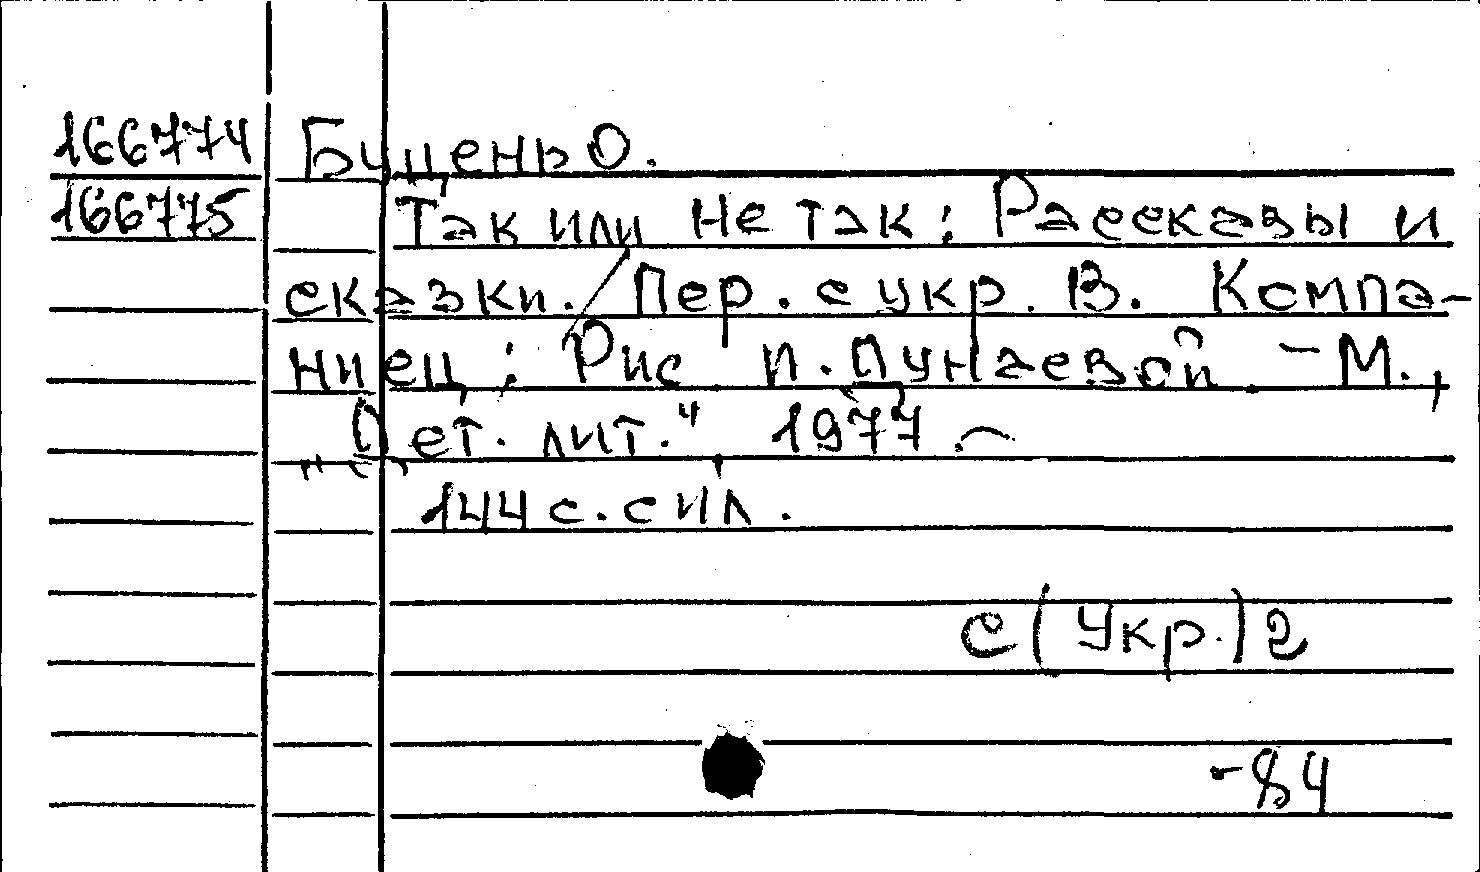 166774 Буцень О.
166775 Так или не так: Рассказы и
сказки. / Пер. с укр. В. Компа-
ниец; Рис. И. Дунаевой. - М.,
"Дет. лит.", 1977. -
144 с. с ил.
С(Укр.)2
-84